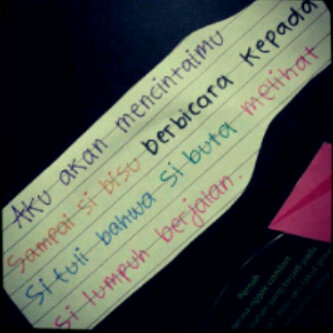 Aku akan mencintaimu
Sampai si bisu berbicara kepada
Si tuli bahwa si buta melihat
Si lumpuh berjalan.
Pernah